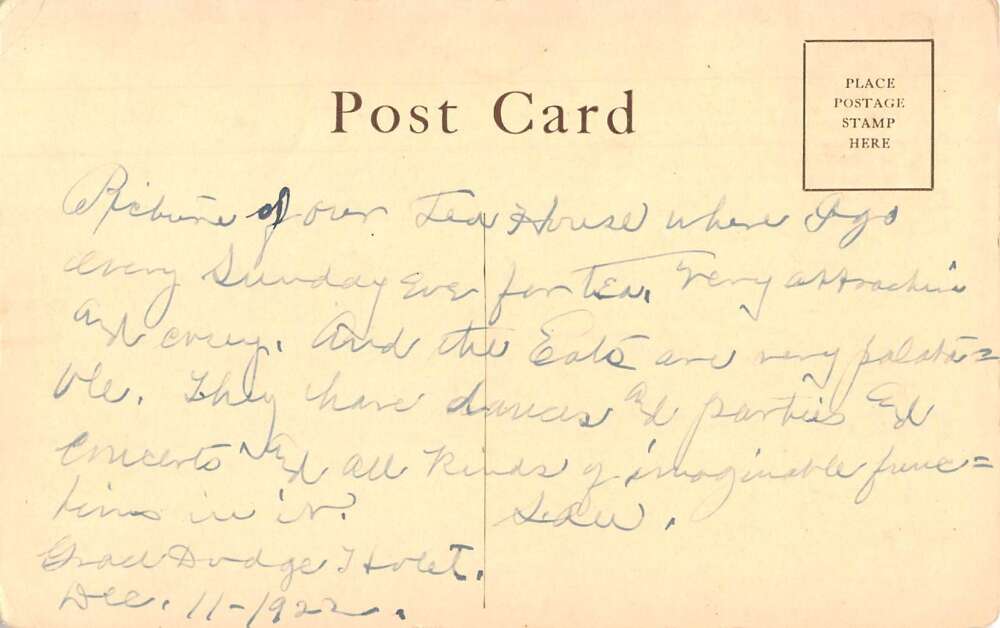 Post Card
PLACE
POSTAGE
STAMP
HERE
Picture of our Tea House where I go
every Sunday Eve for Tea. Very attractive
and cosy. And the Eats are very palata=
ble. They have dances and parties and
Concerts and all kinds of imaginable func=
tions in it.
Grace Dodge Hotel.
Dec. 11-1922.